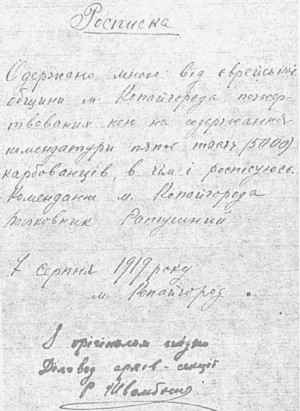 Росписка
Одержано мною від єврейської
общини м. Копайгорода пожер-
твованих нею на содержання
комендатури пять тисяч (5000)
карбованців, в чім і росписуюсь.
Комендант м. Копайгорода
Полковник Ратушний
7 серпня 1919 року
м. Копайгород.
З орігіналом згідно
Діловод архів-секції